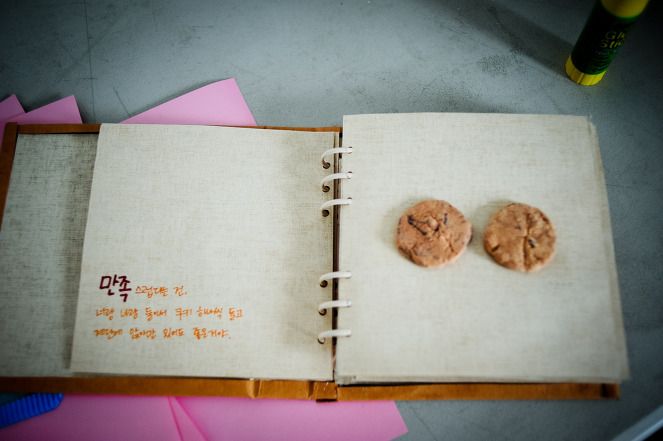 만족스럽다는 건,
너랑 나랑 둘이서 쿠키 하나씩 들고
계단에 앉아만 있어도 좋은거야.